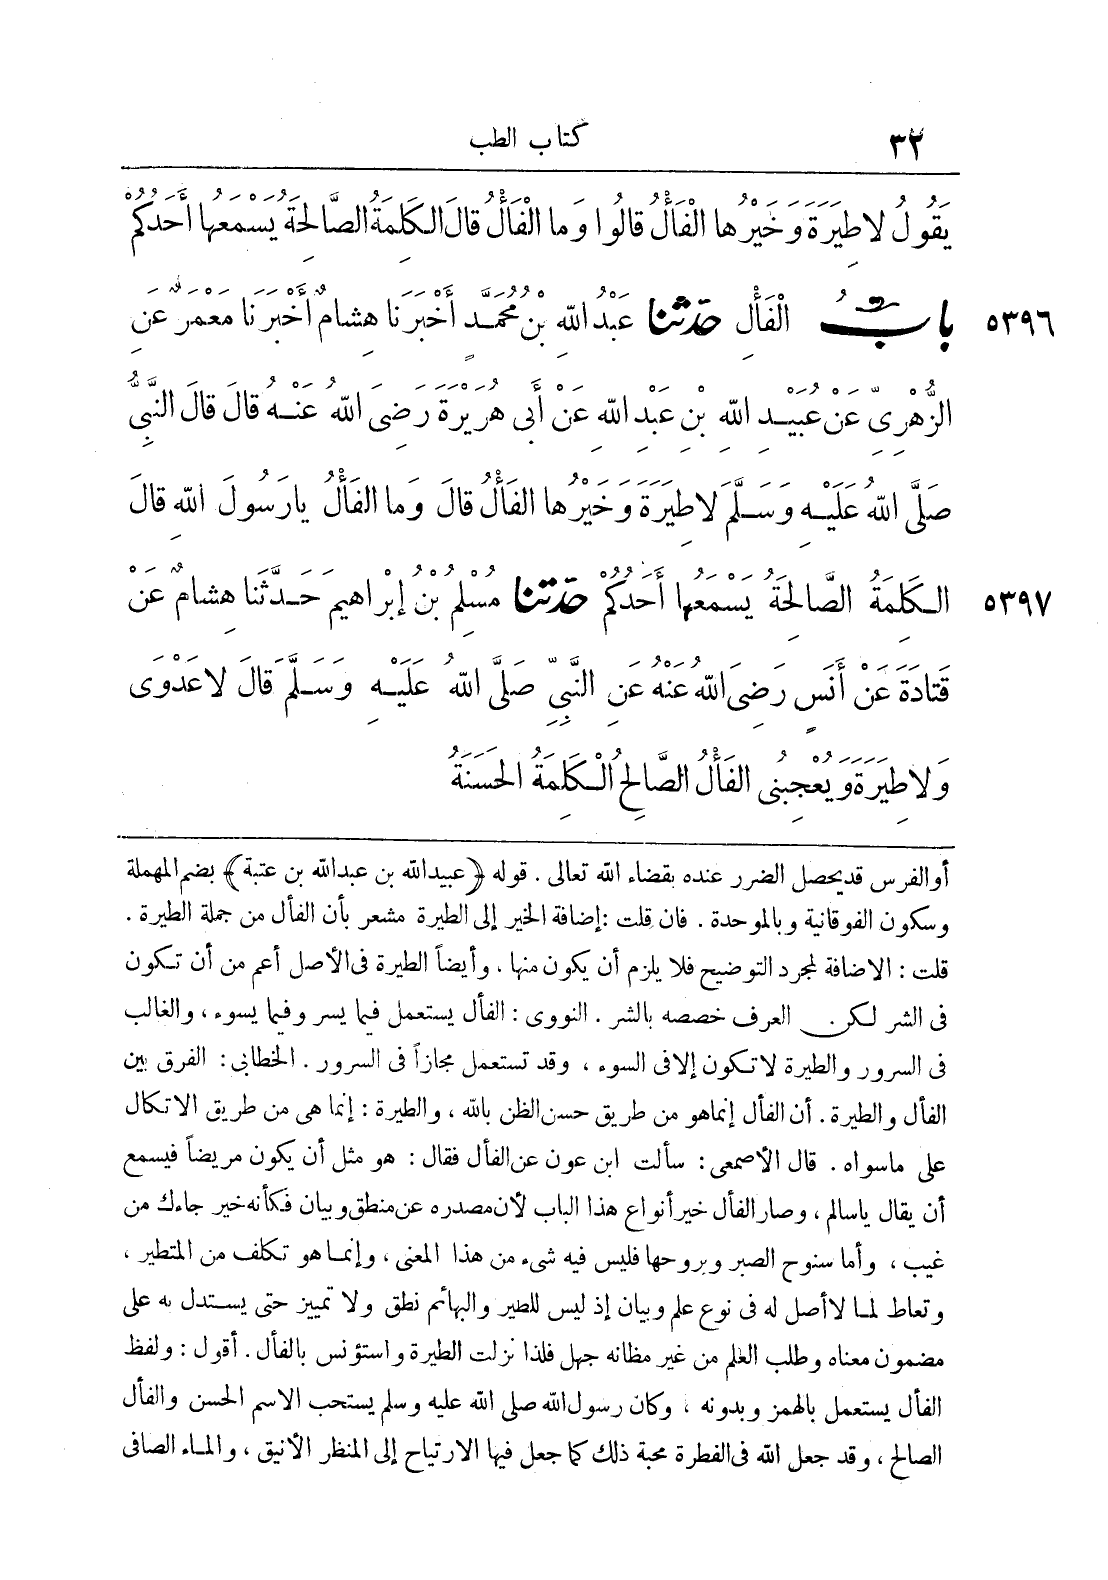 ٣٢
كتاب الطب
يَقُولُ لَا طِيَرَةَ وَخَيْرُهَا الْفَأْلُ قَالُوا وَمَا الْفَأْلُ قَالَ الْكَلِمَةُ الصَّالِحَةُ يَسْمَعُهَا أَحَدُكُمْ
٥٣٩٦ بابُ الْفَأْلِ حدثنا عَبْدُ اللهِ بْنُ مُحَمَّدٍ أَخْبَرَنَا هِشَامٌ أَخْبَرَنَا مَعْمَرٌ عَنِ
الزُّهْرِيِّ عَنْ عُبَيْدِ اللهِ بْنِ عَبْدِ اللهِ عَنْ أَبِى هُرَيْرَةَ رَضِىَ اللهُ عَنْهُ قَالَ قَالَ النَّبِيُّ
صَلَّى اللهُ عَلَيْهِ وَسَلَّمَ لَا طِيَرَةَ وَخَيْرُهَا الفَأْلُ قَالَ وَمَا الفَأْلُ يَارَسُولَ اللهِ قَالَ
٥٣٩٧ الْكَلِمَةُ الصَّالِحَةُ يَسْمَعُهَا أَحَدُكُمْ حدثنا مُسْلِمُ بْنُ إِبْرَاهِيمَ حَدَّثَنَا هِشَامٌ عَنْ
قَتَادَةَ عَنْ أَنَسٍ رَضِىَ اللهُ عَنْهُ عَنِ النَّبِيِّ صَلَّى اللهُ عَلَيْهِ وَسَلَّمَ قَالَ لَا عَدْوَى
وَلَا طِيَرَةَ وَيُعْجِبُنِى الفَأْلُ الصَّالِحُ الْكَلِمَةُ الحَسَنَةُ
أو الفرس قد يحصل الضرر عنده بقضاء الله تعالى . قوله ﴿عبيدالله بن عبدالله بن عتبة﴾ بضم المهملة
وسكون الفوقانية وبالموحدة . فان قلت : إضافة الخير إلى الطيرة مشعر بأن الفأل من جملة الطيرة .
قلت : الاضافة لمجرد التوضيح فلا يلزم أن يكون منها ، وأيضاً الطيرة فى الأصل أعم من أن تكون
فى الشر لكن العرف خصصه بالشر . النووى : الفأل يستعمل فيما يسر وفيما يسوء ، والغالب
فى السرور والطيرة لا تكون إلا فى السوء ، وقد تستعمل مجازاً فى السرور . الخطابى : الفرق بين
الفأل والطيرة . أن الفأل إنما هو من طريق حسن الظن بالله ، والطيرة : إنما هى من طريق الاتكال
على ماسواه . قال الأصمعى : سألت ابن عون عن الفأل فقال : هو مثل أن يكون مريضاً فيسمع
أن يقال ياسالم ، وصار الفأل خير أنواع هذا الباب لأن مصدره عن منطق وبيان فكأنه خير جاءك من
غيب ، وأما سنوح الصبر وبروحها فليس فيه شىء من هذا المعنى ، وإنما هو تكلف من المتطير ،
وتعاط لما لا أصل له فى نوع علم وبيان إذ ليس للطير والبهائم نطق ولا تمييز حتى يستدل به على
مضمون معناه وطلب العلم من غير مظانه جهل فلذا نزلت الطيرة واستؤنس بالفأل . أقول : ولفظ
الفأل يستعمل بالهمز وبدونه ، وكان رسول الله صلى الله عليه وسلم يستحب الاسم الحسن والفأل
الصالح ، وقد جعل الله فى الفطرة محبة ذلك كما جعل فيها الارتياح إلى المنظر الأنيق ، والماء الصافى